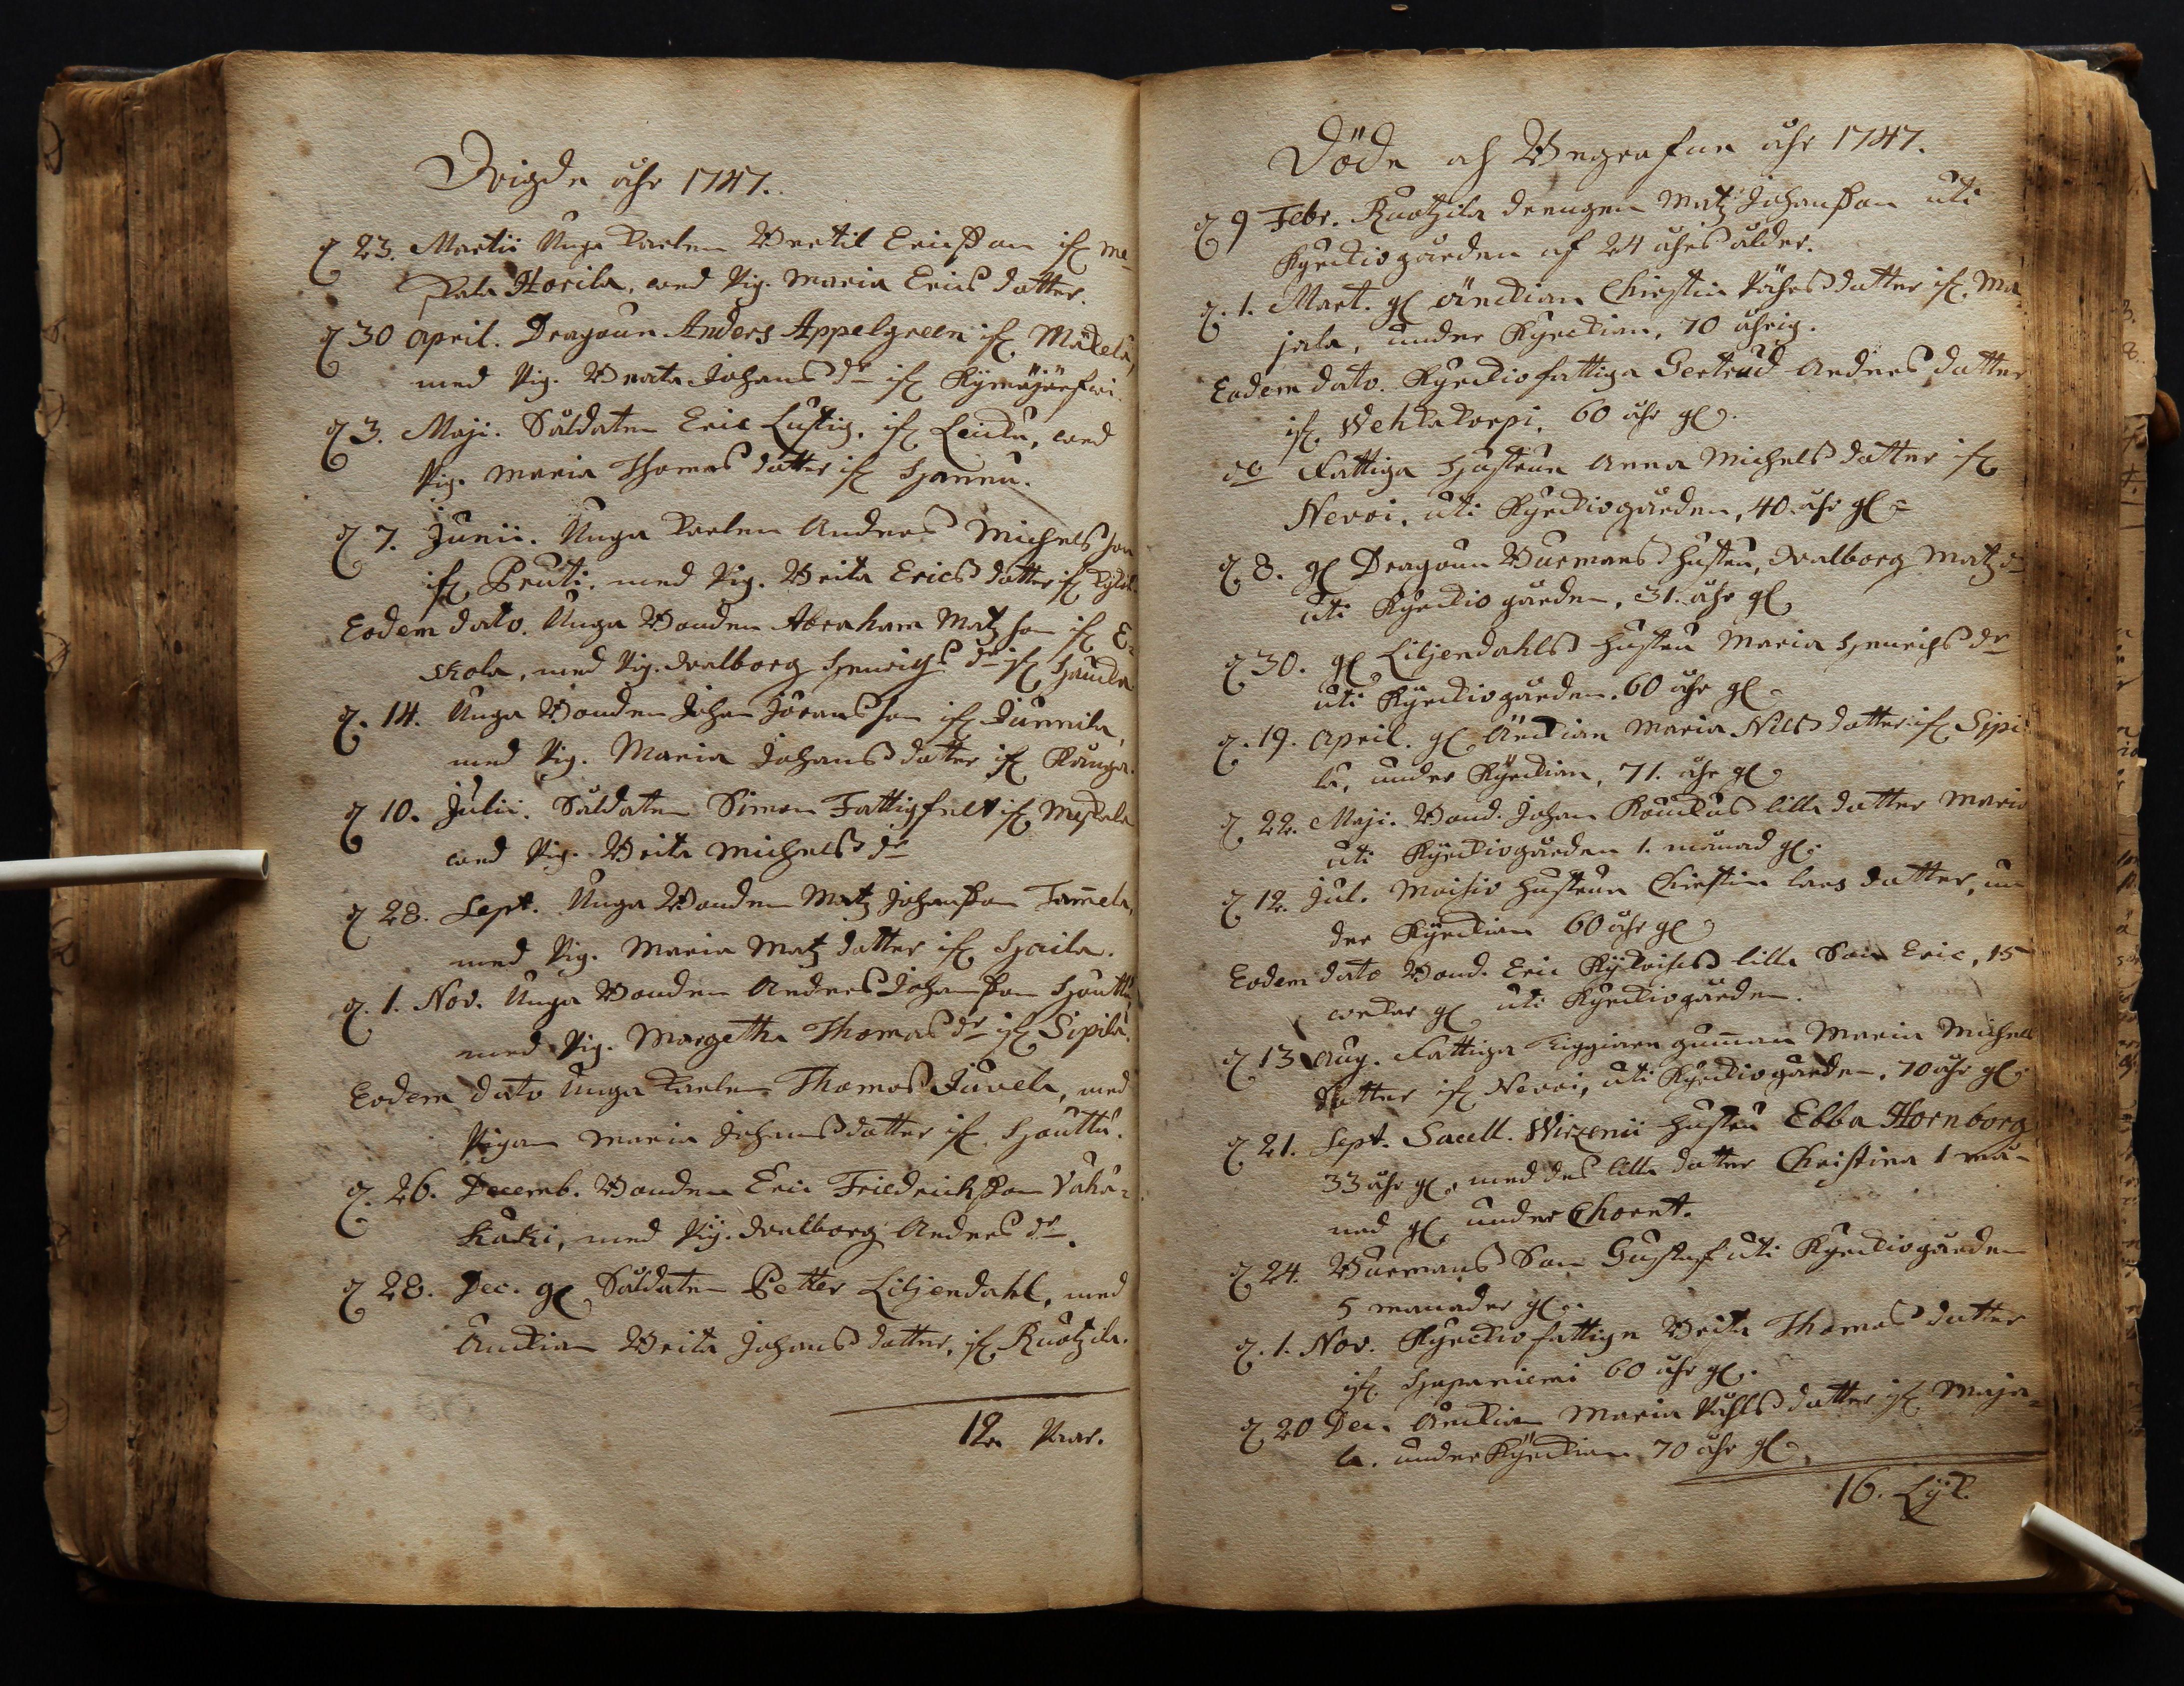 Wigde åhr 1747.
d 23. Martii Unga Karlen Bertil Ericsson ifr. Me-
skala Horila, med Pig. Maria Erics dotter.
d 30 April. Dragoun Anders Appelgreen ifr. Mäkelä,
med Pig. Beata Johans dr ifr. Kymäjärfwi.
d 3. Maji. Såldaten Eric Lustig, ifr. Leicku, med
Pig. Maria Thomas dotter ifr. Hannu.
d 7. Junii. Unga Karlen Anders Michels son
ifr. Pruti, med Pig. Brita Erics dotter ifr.
Eodem dato. Unga Bonden Abraham Matz son ifr. E-
skola, med Pig. Walborg Henrichs dr ifr.
d. 14. Unga Bonden Johan Jörans son ifr. Junnila,
med Pig. Maria Johans dotter ifr. Kånga.
d 10. Julii. Såldaten Simon Fattigfelt ifr. Meskala
med Pig. Brita Michels dr
d 28. Sept. Unga Bonden Matz Johansson Tam̄ela,
med Pig. Maria Matz dotter ifr. Hjaila.
d. 1. Nov. Unga Bonden Anders Johansson Houttu,
med Pig. Margetha Thomas dr ifr. Sipilä.
Eodem dato Unga Karlen Thomas Juvela, med
Pigan Maria Johans dotter ifr. Houttu.
d. 26. Decemb. Bonden Eric Friedrichsson Vähä-
Kuki, med Pig. Walborg Anders dr.
d 28. Dec. gl Såldaten Petter Liljendahl, med
Änckian Brita Johans dotter, ifr. Ruotzila.
12. Paar.
Döde och Begrafne åhr 1747.
d 9 Febr. Ruotzila drengen Matz Johansson uti
Kyrckiogården af 24 åhrs ålder.
d. 1. Mart. gl änckian Christin Påhls dotter ifr. Ma-
jala, under Kyrckian, 70 åhrig.
Eodem dato. Kyrckiofattiga Gertrud Anders dotter
ifr. Wehkakorpi, 60 åhr gl.
do Fattiga Hustrun Anna Michels dotter ifr.
Nervoi, uti Kyrckiogården, 40 åhr gl.
d. 8. gl Dragoun Burmans hustru, Walborg Matz dr
uti Kyrckiogården, 31. åhr gl
d 30. gl Liljendahls hustru Maria Henrichs dr
uti Kyrckiogården. 60 åhr gl.
d. 19. April. gl Änckian Maria Nils dotter ifr. Sipi-
lä, under Kyrckian, 71. åhr gl.
d. 22. Maji. Bond. Johan lilla dotter Maria
uti Kyrckiogården 1. månad gl.
d 12. Jul. Moisio hustrun Christin Lars dotter, un
der Kyrckian 60 åhr gl
Eodem dato Bond. Eric lilla Son Eric, 15
wekor gl uti Kyrckiogården.
d 13 Aug. Fattiga tiggiare gum̄an Maria Michels
dotter ifr. Nervoi, uti Kyrckiogården, 70 åhr gl.
d 21. Sept. Sacell. Wirzenii hustru Ebba Hornborg
33 åhr gl, med des lilla dotter Christina 1 må-
nad gl under Choret.
d 24. Burmans Son Gustaf uti Kyrckiogården
5 månader gl.
d. 1. Nov. Kyrckiofattiga Brita Thomas dotter
ifr. Haapaniemi 60 åhr gl.
d 20 Dec. Änckian Maria Påhls dotter ifr. Maja-
la, under Kyrckian 70 åhr gl.
16. Lijk.